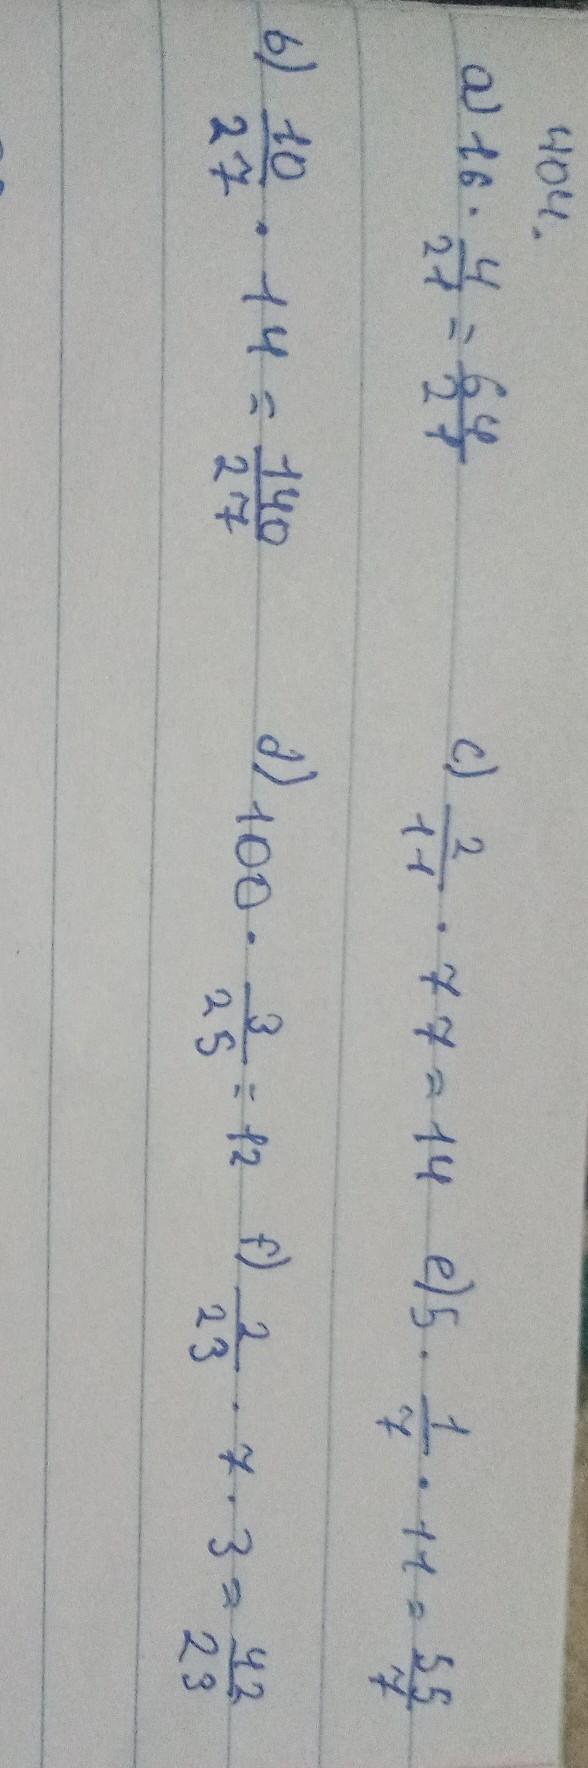 404.
a) 16 · 4/21 = 64/21 c) 2/11 · 77 = 14 e) 5 · 1/7 · 11 = 55/7
b) 10/27 · 14 = 140/27 d) 100 · 3/25 = 12 f) 2/23 · 7 · 3 = 42/23